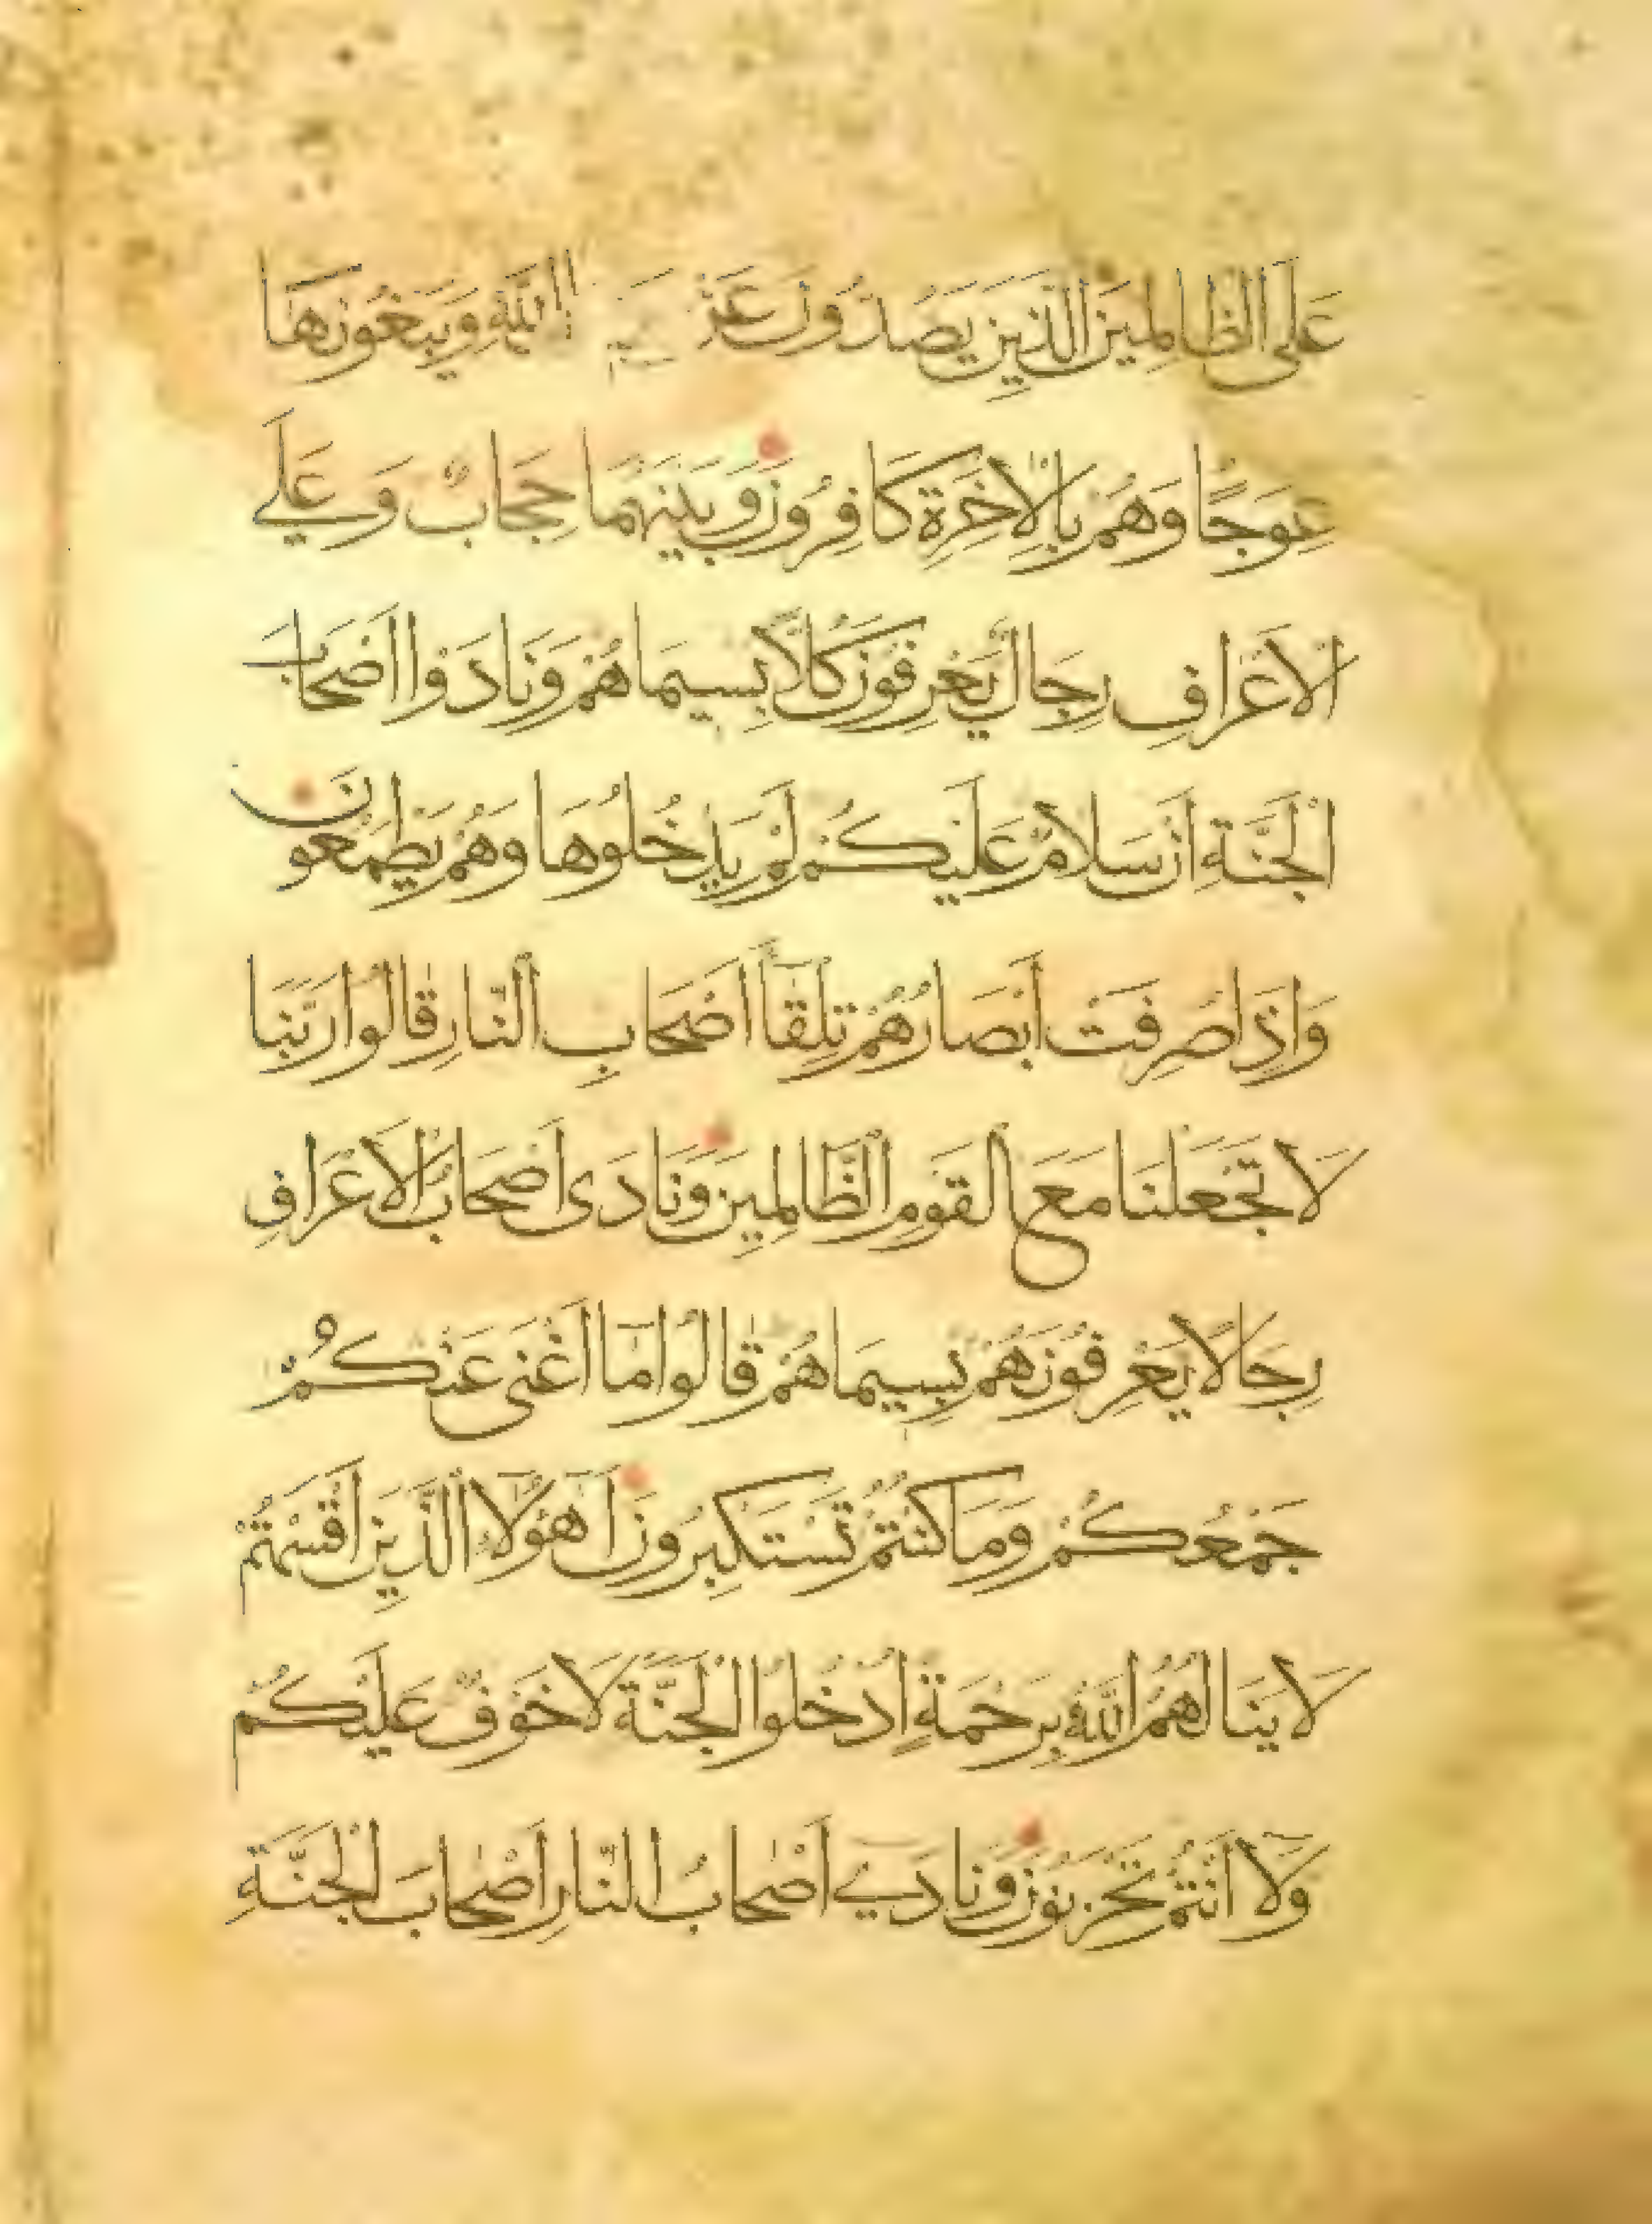 عَلَى الظَّالِمِينَ الَّذِينَ يَصُدُّونَ عَنْ اللَّهِ وَيَبْغُونَهَا
عِوَجًا وَهُمْ بِالْآخِرَةِ كَافِرُونَ وَبَيْنَهُمَا حِجَابٌ وَعَلَى
الْأَعْرَافِ رِجَالٌ يَعْرِفُونَ كُلًّا بِسِيمَاهُمْ وَنَادَوْا أَصْحَابَ
الْجَنَّةِ أَنْ سَلَامٌ عَلَيْكُمْ لَمْ يَدْخُلُوهَا وَهُمْ يَطْمَعُونَ
وَإِذَا صُرِفَتْ أَبْصَارُهُمْ تِلْقَاءَ أَصْحَابِ النَّارِ قَالُوا رَبَّنَا
لَا تَجْعَلْنَا مَعَ الْقَوْمِ الظَّالِمِينَ وَنَادَى أَصْحَابُ الْأَعْرَافِ
رِجَالًا يَعْرِفُونَهُمْ بِسِيمَاهُمْ قَالُوا مَا أَغْنَى عَنْكُمْ
جَمْعُكُمْ وَمَا كُنْتُمْ تَسْتَكْبِرُونَ أَهَؤُلَاءِ الَّذِينَ أَقْسَمْتُمْ
لَا يَنَالُهُمُ اللَّهُ بِرَحْمَةٍ ادْخُلُوا الْجَنَّةَ لَا خَوْفٌ عَلَيْكُمْ
وَلَا أَنْتُمْ تَحْزَنُونَ وَنَادَى أَصْحَابُ النَّارِ أَصْحَابَ الْجَنَّةِ